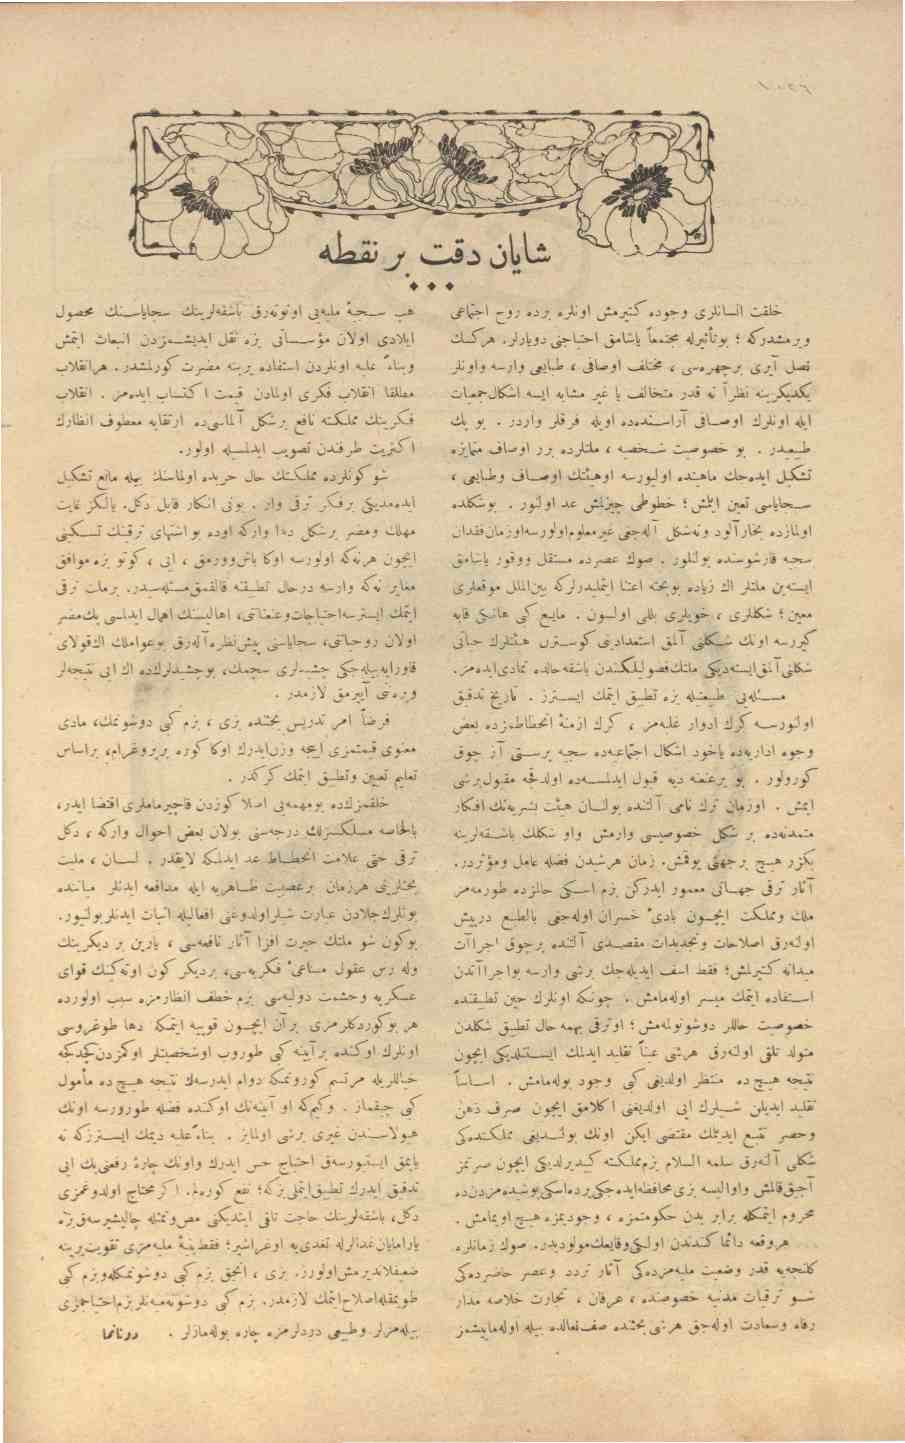 شايان دقت بر نقطه
خلقت انسانلری وجوده كتيرمش اونلره برده روح اجتماعی
ويرمشدركه ؛ بوتأثيرله مجتمعاً ياشامق احتياجنی دويارلر. هركسك
فصل آيری برچهره‌سی ، مختلف اوصافی ، طبايعی وارسه واونلر
يكديكرينه نظراً نه قدر متخالف يا غير مشابه ايسه اشكال جمعيات
ايله اونلرك اوصافی آراسنده‌ده اويله فرقلر واردر . بو پك
طبيعيدر . بو خصوصيت شخصيه ، ملتلرده برر اوصاف متمايزه
تشكيل ايده‌جك ماهيتده اوليورسه اوهيئتك اوصاف وطبايعی ،
سجاياسی تعين ايتمش ؛ خطوطی چيزلمش عد اولنور . بوشكلده
اولمازده بخارآلود ونه‌شكل آله‌جغی غيرمعلوم اولورسه‌اوزمان‌فقدان
سجيه قارشوسنده بولنلور . صوك عصرده مستقل ووقور ياشامق
ايسته‌ين ملتلر اك زياده بوبحثه اعتنا ايتمليدرلركه بين‌الملل موقعلری
معين ؛ شكللری ، خويلری بللی اولسون . مايع كبی هانكی قابه
كيررسه اونك شكلنی آلمق استعدادينی كوسترن هيئتلرك حياتی
شكلنی آلمق‌ايسته‌ديكی ملتك‌فضوليلكندن باشقه حالده تمادی‌ايده‌مز.
مسئله‌يی طبيعتيله بزه تطبيق ايتمك ايسترز . تاريخ تدقيق
اولنورسه كرك ادوار غلبه‌مز ، كرك ازمنهٔ انحطاطمزده بعض
وجوه اداريه‌ده ياخود اشكال اجتماعيه‌ده سجيه پرستی آز چوق
كورولور . بو برعنعنه ديه قبول ايدلسه‌ده اولدقجه مقبول‌برشی
ايمش . اوزمان ترك نامی آلتنده بولنان هيئت بشريه‌نك افكار
متمدنه‌ده بر شكل خصوصيسی وارمش واو شكلك باشقه‌لرينه
بكزر هيچ برجهتی يوقمش. زمان هرشيدن فضله عامل ومؤثردر.
آثار ترقی جهاتی معمور ايدركن بزم اسكی حالمزده طورمه‌مز
ملك ومملكت ايچون بادیٔ خسران اوله‌جغی بالطبع درپيش
اولنه‌رق اصلاحات وتجديدات مقصدی آلتنده برچوق اجراآت
ميدانه كتيرلمش؛ فقط اسف ايديله‌جك برشی وارسه بواجراآتدن
استفاده ايتمك ميسر اوله‌مامش . چونكه اونلرك حين تطبيقنده
خصوصيت حاللر دوشونولمه‌مش ؛ اوترقی بهمه حال تطبيق شكلدن
متولد تلقی اولنه‌رق هرشی عيناً تقليد ايدلمك ايستنلديكی ايچون
نتيجه هيچ ده منتظر اولديغی كبی وجود بوله‌مامش . اساساً
تقليد ايديلن شيلرك ايی اولديغنی اكلامق ايچون صرف ذهن
وحصر تتبع ايدلمك مقتضی ايكن اونك بولنديغی مملكتده‌كی
شكلی آلنه‌رق سلمه السلام بزم‌مملكته كيديرلديكی ايچون صرتمز
آچيق‌قالمش واواليسه بزی محافظه‌ايده‌جكی‌يرده‌اسكی‌پوشيده‌مزدن‌ده
محروم ايتمكله برابر بدن حكومتمزه ، وجوديمزه هيچ اويمامش .
هروقعه دائما كندندن اولكی‌وقايعك‌مولوديدر. صوك زمانلره
كلنجه‌يه قدر وضعيت مليه‌مزده‌كی آثار تردد وعصر حاضرده‌كی
شو ترقيات مدنيه خصوصنده ، عرفان ، تجارت خلاصه مدار
رفاه وسعادت اوله‌جق هرشی بحثنده صف‌نعالده بيله اوله‌مايشمز
هپ سجيهٔ مليه‌يی اونوته‌رق باشقه‌لرينك سجاياسنك محصول
ايلادی اولان مؤسساتی بزه نقل ايديشمزدن انبعاث ايتمش
وبناءً عليه اونلردن استفاده يرينه مضرت كورلمشدر. هرانقلاب
مطلقا انقلاب فكری اولمادن قيمت ا كتساب ايده‌مز . انقلاب
فكرينك مملكته نافع برشكل آلماسی‌ده ارتقايه معطوف انظارك
ا كثريت طرفندن تصويب ايدلمسيله اولور.
شو كونلرده مملكتك حال حربده اولماسنك بيله مانع تشكيل
ايده‌مديكی برفكر ترقی وار . بونی انكار قابل دكل. يالكز غايت
مهلك ومضر برشكل دها واركه اوده بو اشتهای ترقينك تسكينی
ايچون هرنه‌كه اولورسه اوكا باش‌وورمق ، ايی ، كوتو بزه موافق
مغاير نه‌كه وارسه درحال تطبيقنه قالقمق‌مسئله‌سيدر. برملت ترقی
ايتمك ايسترسه‌احتياجات‌وعنعناتی، اهاليسنك اهمال ايدلمسی پك‌مضر
اولان روحياتی، سجاياسنی پيش‌نظره آله‌رق بوعواملك اك‌قولای
قاورايه‌بيله‌جكی جشدلری سچمك، بوجشدلرك‌ده اك ايی نتيجه‌لر
ويره‌نی آييرمق لازمدر .
فرضاً امر تدريس بحثنده بزی ، بزم كبی دوشونمك، مادی
معنوی قيمتمزی ايیجه وزن‌ايدرك اوكا كوره برپروغرام، براساس
تعليم تعيين وتطبيق ايتمك كركدر .
خلقمزك‌ده بومهمه‌يی اصلا كوزدن قاچيرماملری اقتضا ايدر،
بالخاصه مسلكسزلك درجه‌سنی بولان بعض احوال واركه ، دكل
ترقی حتی علامت انحطاط عد ايدلمكه لايقدر . لسان ، مليت
بحثلرينی هرزمان برعصبيت ظاهريه ايله مدافعه ايدنلر مياننده
بونلرك‌جلادن عبارت شيلراولدوغنی افعاليله اثبات ايدنلربولنيور.
بوكون شو ملتك حيرت افزا آثار نافعه‌سی ، يارين بر ديكرينك
وله رس عقول مساعیٔ فكريه‌سی، برديكر كون اوته‌كينك قوای
عسكريه وحشمت دوليه‌سی بزم خطف انظارمزه سبب اولورده
هر بوكوردكلرمزی برآن ايچون قوپيه ايتمكه دها طوغروسی
اونلرك اوكنده برآيينه كبی طوروب اوشخصيتلر اوكمزدن‌كچدكجه
خياللريله مرتسم كورونمكه دوام ايدرسه‌ك نتيجه هيچ ده مأمول
كبی چيقماز . وكيم‌كه او آيينه‌نك اوكنده فضله طورورسه اونك
هيولاسندن غيری برشی اولماز . بناءًعليه ديمك ايسترزكه نه
يايمق ايستيورسه‌ق احتياج حس ايدرك واونك چارهٔ رفعنی‌پك ايی
تدقيق ايدرك تطبيق‌ايتملی‌يزكه؛ نفع كوره‌لم. اكر محتاج اولدوغمزی
دكل، باشقه‌لرينك حاجت تافی ايتديكنی مص‌وتمثله چاليشيرسه‌ق‌بزه
يارامايان‌غدالرله تغدی‌يه اوغراشير؛ فقط‌بنيهٔ مليه‌مزی تقويت‌يرينه
ضعيفلانديرمش‌اولورز. بزی ، انجق بزم كبی دوشونمكله‌وبزم كبی
طويمقله‌اصلاح‌ايتمك لازمدر. بزم كبی دوشونه‌مه‌ينلربزم‌احتياجمزی
بيله‌مزلر وطبيعی دردلرمزه چاره بوله‌مازلر .